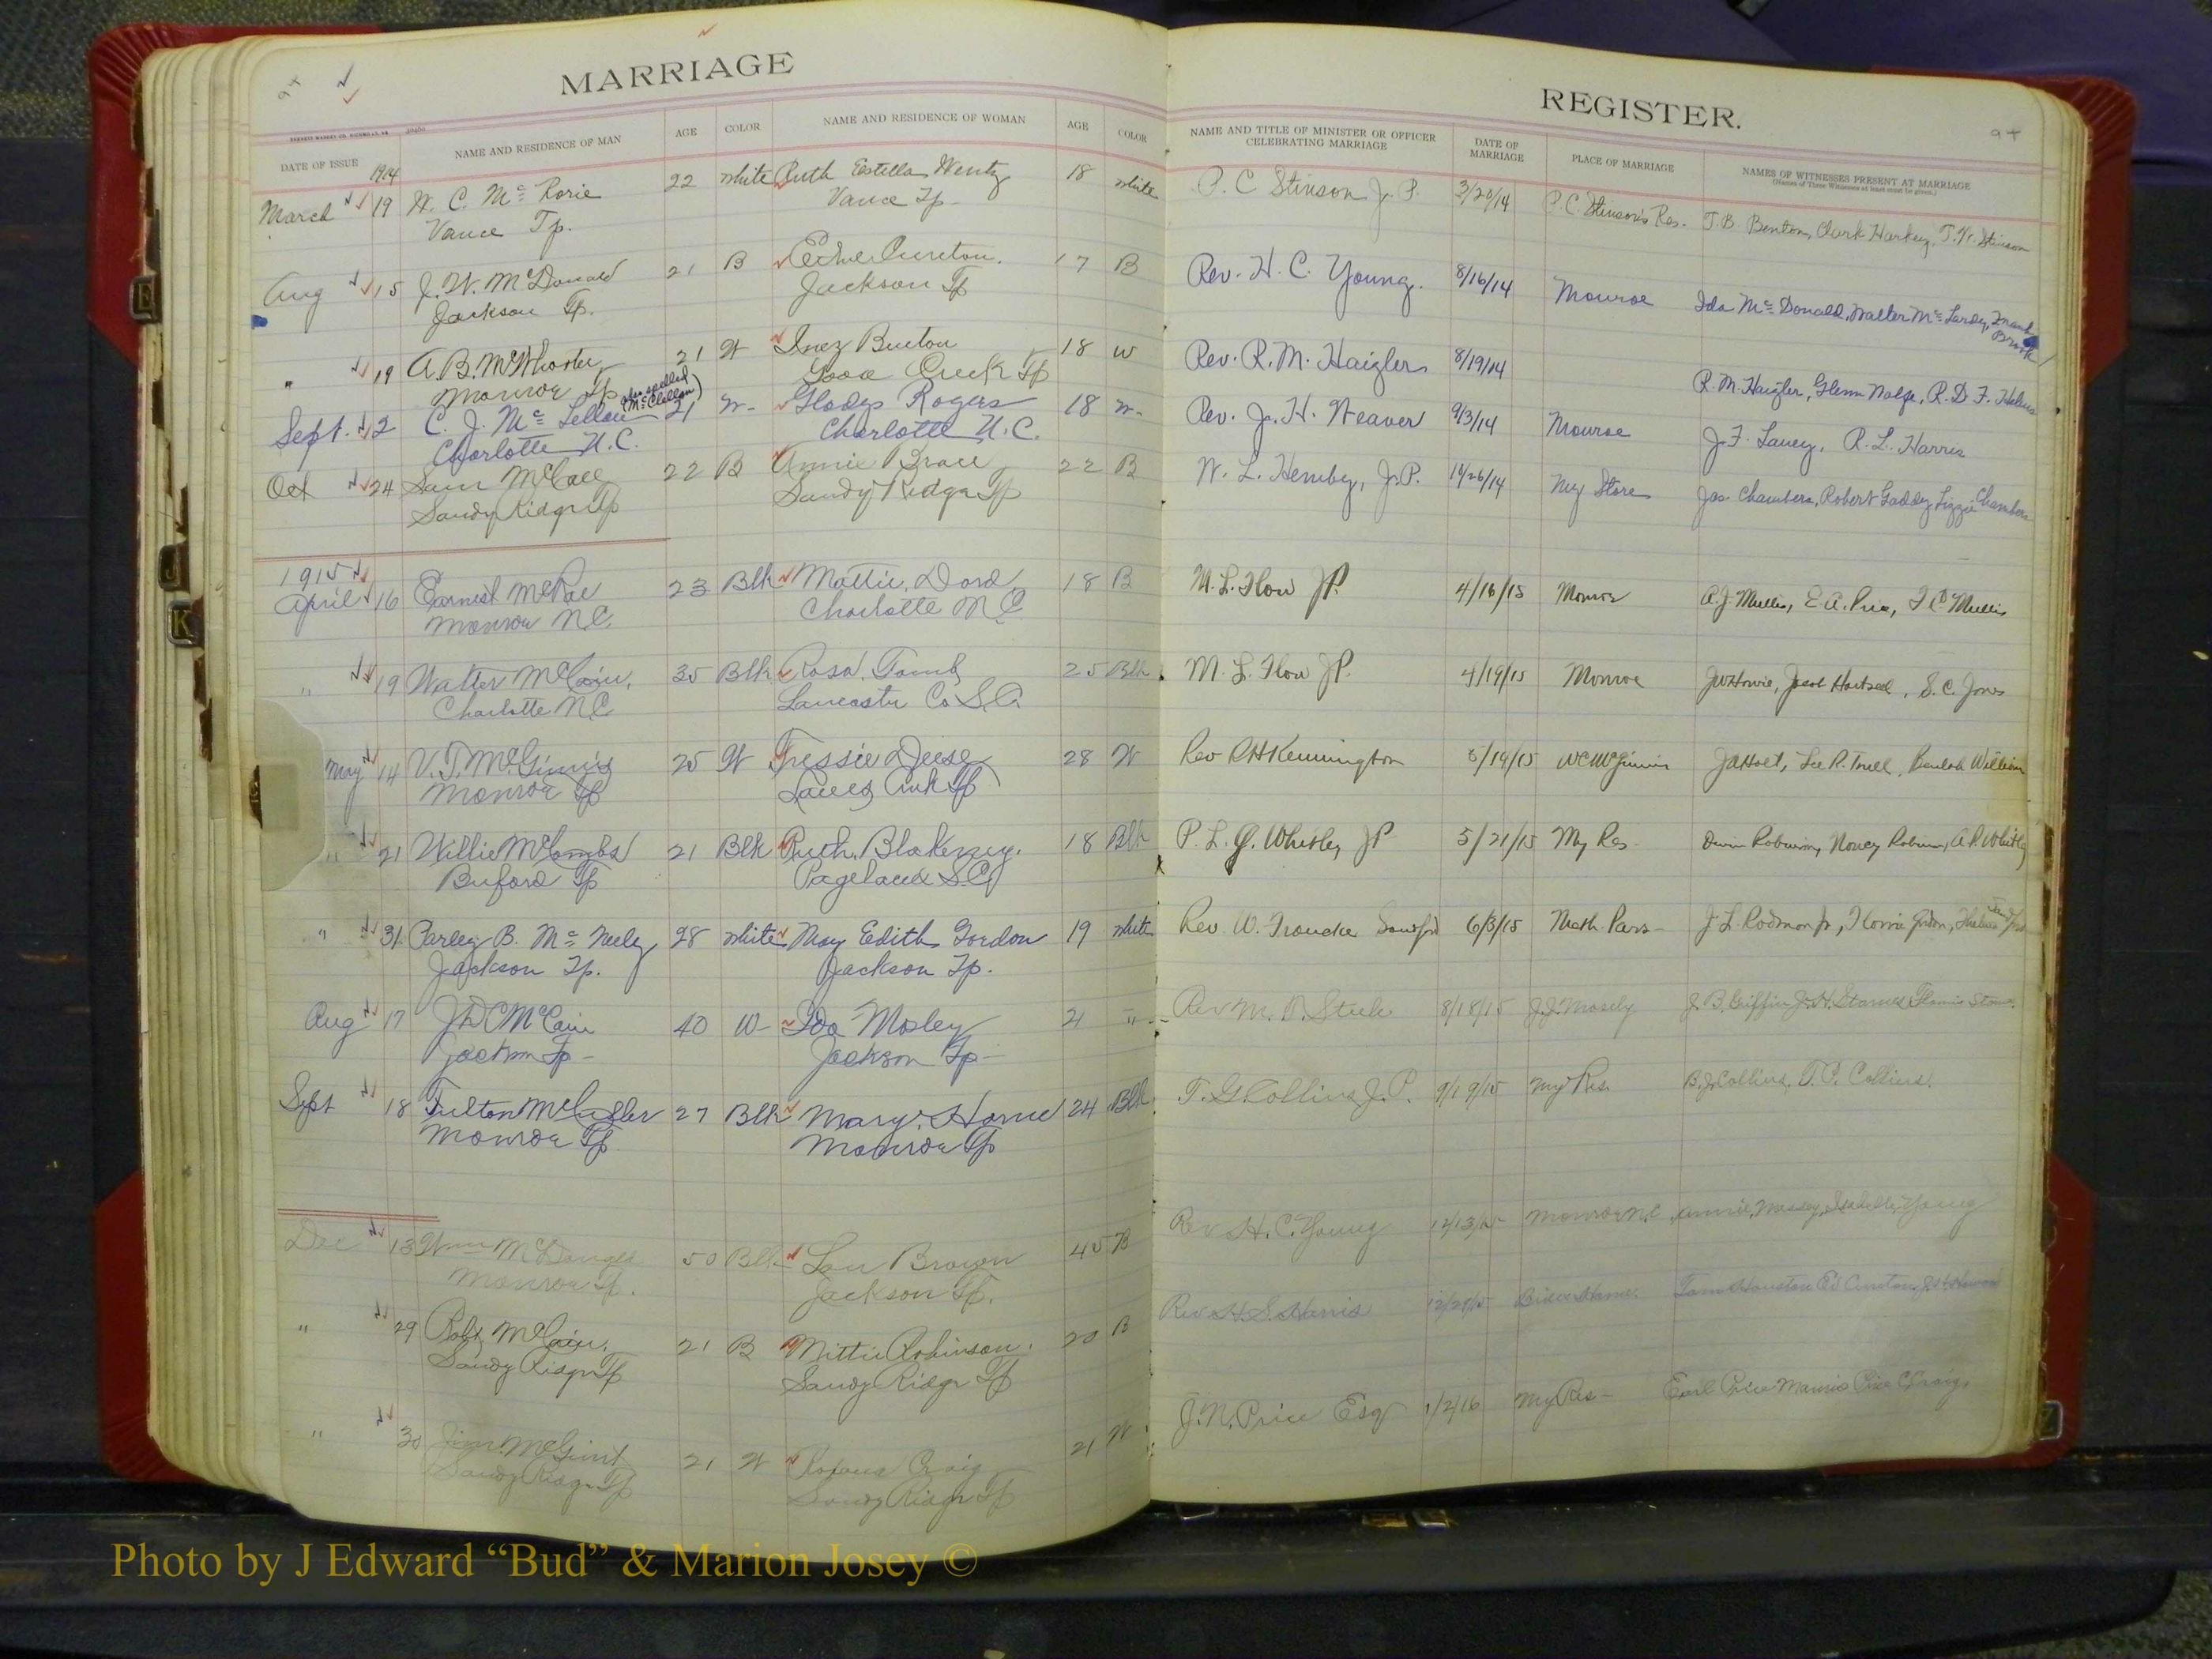 MARRIAGE
REGISTER.
94
94
DATE OF ISSUE 1914 NAME AND RESIDENCE OF MAN AGE COLOR NAME AND RESIDENCE OF WOMAN AGE COLOR NAME AND TITLE OF MINISTER OR OFFICER CELEBRATING MARRIAGE DATE OF MARRIAGE PLACE OF MARRIAGE NAMES OF WITNESSES PRESENT AT MARRIAGE
(Names of Three Witnesses at least must be given.)
March 19 H. C. McRorie 22 white Ruth Estella Wentz 18 white P. C Stinson J. P. 3/20/14 P. C. Stinson's Res. T. B. Benton, Clark Harkey, T. W. Stinson
Vance Tp. Vance Tp
Aug 15 J. W. McDonald 21 B Cureton 17 B Rev. H. C. Young. 8/16/14 Monroe Ida McDonald, Walter
Jackson Tp. Jackson Tp
" 19 A. B. McWhorter 21 W Inez 18 W Rev. R. M. Haigler 8/19/14 R. M. Haigler, Glenn Wolfe, R. D. F. Helms
Monroe Tp Goose Creek Tp
Sept. 2 C. J. McLellan (also spelled McClellan) 21 W- Gladys Rogers 18 W- Rev. J. H. Weaver 9/3/14 Monroe J. F. Laney, R. L. Harris
Charlotte N. C. Charlotte N. C.
Oct 24 Sam McCall 22 B Annie Brace 22 B W. L. Hemby, J. P. 10/26/14 My Store Jas. Chambers, Robert Gaddy, Lizzie Chambers
Sandy Ridge Tp Sandy Ridge Tp
1915
April 16 Earnest McRae 23 Blk Mattie 18 B M. L. Flow JP. 4/16/15 Monroe A. J. Mullis, E. A. Price, Mullis
Monroe N. C. Charlotte N C
" 19 Walter McCain 35 Blk Rosa 25 Blk M. L. Flow JP. 4/19/15 Monroe J W Howie, Jacob Hartsell, S. C. Jones
Charlotte N C Lancaster Co S. C.
May 14 V. T. McGinnis 25 W Tressie Deese 28 W Rev R H Kennington 5/14/15 W C McGinnis J A Holt, Lee R. Trull, Beulah William
Monroe Tp Lanes Creek Tp
" 21 Willie McCombs 21 Blk Ruth Blakeney 18 Blk P. L. G. Whitley JP 5/21/15 My Res
Buford Tp Pageland S. C.
" 31 Parley B. McNeely 28 white May Edith Gordon 19 white Rev. W. Francke Sanford 6/3/15 Meth. Pars- J. L. Rodman Jr,
Jackson Tp. Jackson Tp.
Aug 17 McCain 40 W- Ida Mosley 21 " Rev M. Steele 8/18/15 J. J. Mosely J. B. Griffin, J. H. Starnes,
Jackson Tp- Jackson Tp-
Sept 18 Fulton 27 Blk Mary Horne 24 Blk T. G. Collins J. P. 9/19/15 My Res. B. J. Collins, T. P. Collins.
Monroe Tp. Monroe Tp
Dec 13 Wm 50 Blk Lou Brown 45 B Rev H. C. Young 12/13/15 Monroe N. C. Annie Massey, Isabelle Young
Monroe Tp. Jackson Tp.
" 29 Robt McCain 21 B Mittie Robinson 20 B Rev H. S. Harris 12/29/15 Tom Houston Ed Cureton
Sandy Ridge Tp Sandy Ridge Tp
" 30 Jim 21 W Craig 21 W J. N. Price Esq 1/2/16 My Res- Earl Price Craig
Sandy Ridge Tp Sandy Ridge Tp
Photo by J Edward “Bud” & Marion Josey ©